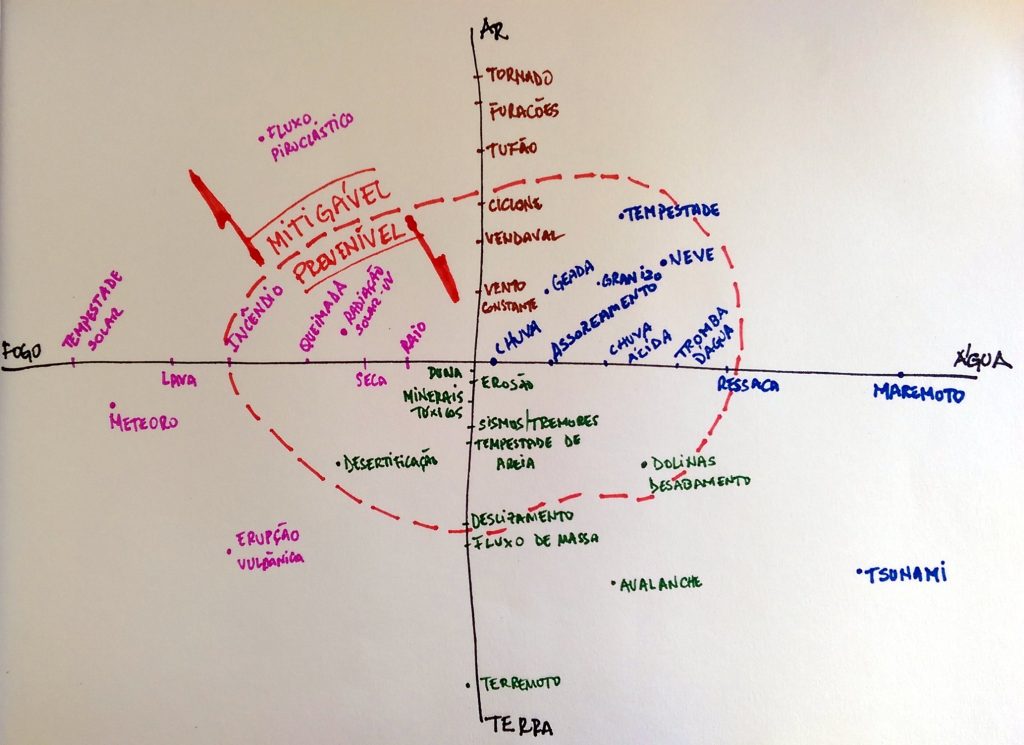 AR
TORNADO
FURACÕES
FLUXO
PIROCLÁSTICO
TUFÃO
MITIGÁVEL
PREVENÍVEL
CICLONE
TEMPESTADE
VENDAVAL
NEVE
GEADA
GRANIZO
VENTO
CONSTANTE
TEMPESTADE
SOLAR
INCÊNDIO
QUEIMADA
RADIAÇÃO
SOLAR-UV
RAIO
CHUVA
ASSOREAMENTO
CHUVA
ÁCIDA
TROMBA
DÁGUA
FOGO
ÁGUA
LAVA
SECA
DUNA
EROSÃO
RESSACA
MAREMOTO
MINERAIS
TÓXICOS
METEORO
SISMOS/TREMORES
TEMPESTADE DE
AREIA
DESERTIFICAÇÃO
DOLINAS
DESABAMENTO
DESLIZAMENTO
FLUXO DE MASSA
ERUPÇÃO
VULCÂNICA
AVALANCHE
TSUNAMI
TERREMOTO
TERRA